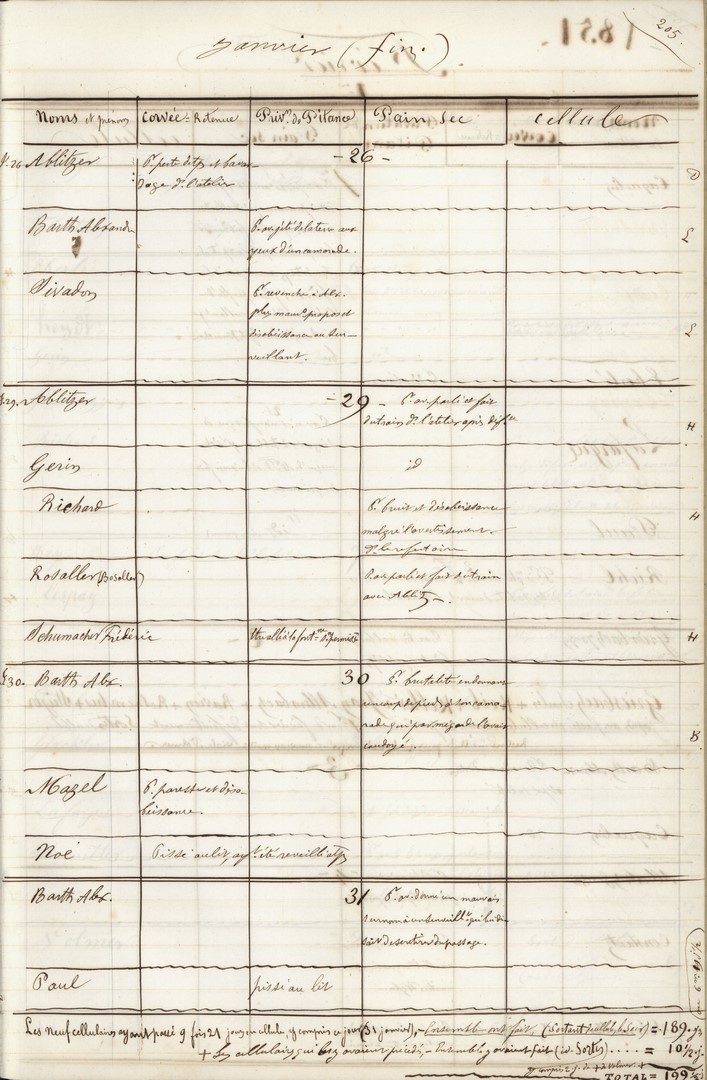 205.
Janvier (fin.)
Noms et prénoms
Corvée = Retenue
Priv.on de Pitance
Pain Sec
cellule
26 Ablitzer
P. perte de tps et bavar-
dage d. l'atelier
- 26 -
D
Barth Alexandre
P. av. jeté de la terre aux
yeux d'un camarade.
L
Sivadon
P. revanche à Alex.
plus mauv. propos et
désobéissance au Sur-
veillant.
L
29. Ablitzer
- 29 -
P. av. parlé et fait
du train d. l'atelier après
H
Gerin
id
Richard
P. bruit et désobéissance
malgré l'avertissement
d. le réfectoire
H
Rosaller (Bosaller)
P. av. parlé et fait du train
avec Ablitz
Schumacher Frédéric
allé à la font.ne s. permis
H
30. Barth Alex.
30
P. brutalité en donnant
un coup de pied à son cama-
rade qui par mégarde l'avait
coudoyé.
B
Mazel
P. paresse et déso-
béissance.
Noé
Pissé au lit, ayt été réveillé
Barth Alex.
31
P. av. donné un mauvais
surnom à un surveillt qui lui di-
sait de se retirer du passage.
Paul
pissé au lit
Les Neuf cellulaires ayant passé 9 fois 21 jours en cellule, y compris ce jour (31 janvier), - l'ensemble ont fait = 189. js
+ Les cellulaires qui les avaient précédé, - Ensemble y avaient fait (id. Sortis) .... = 10 1/2 j.
TOTAL = 199 1/2